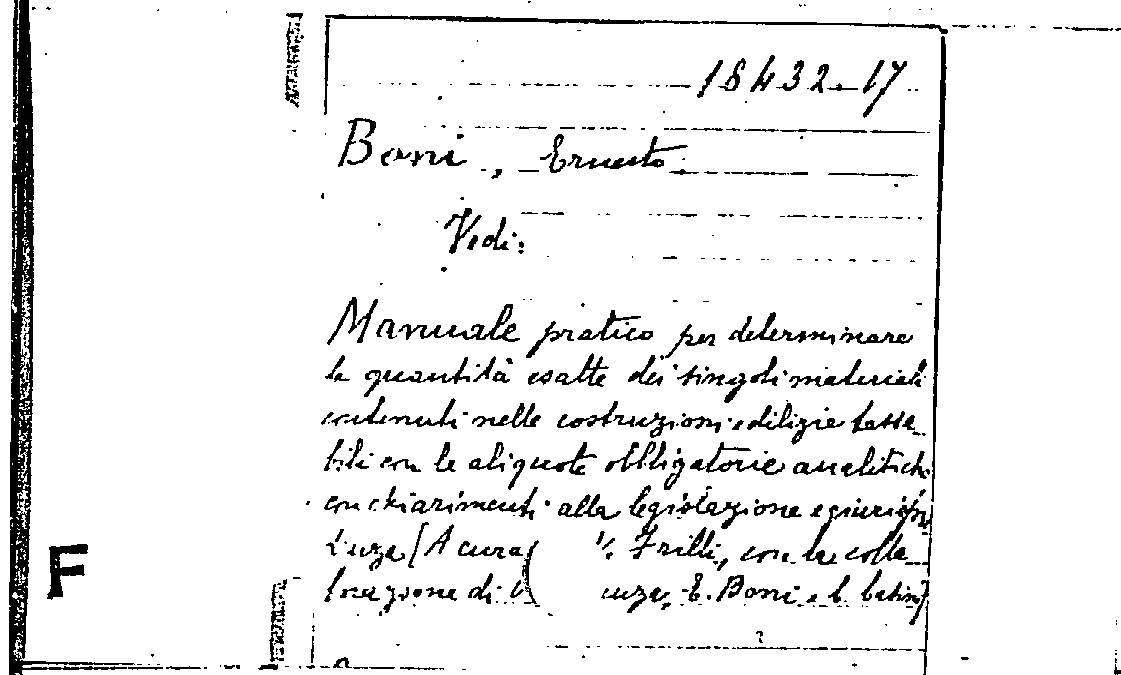 18432-17
Boni, Ernesto.
Vedi:
Manuale pratico per determinare
le quantità esatte dei singoli materiali
contenuti nelle costruzioni edilizie tassa_
bili con le aliquote obbligatorie analitiche
con chiarimenti alla legislazione e giurispru
denza [A cura Frilli, con la colla_
borazione di E. Boni e
F